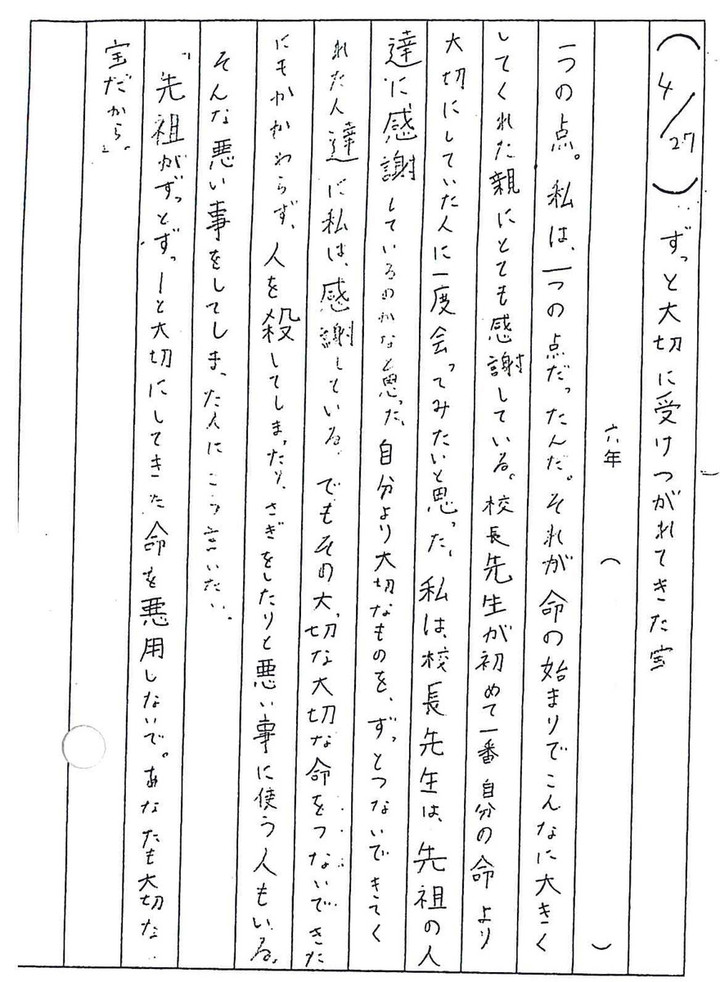 (4/27) ずっと大切に受けつがれてきた宝
六年 ( )
一つの点。私は、一つの点だったんだ。それが命の始まりでこんなに大きく
してくれた親にとても感謝している。校長先生が初めて一番自分の命より
大切にしていた人に一度会ってみたいと思った。私は、校長先生は、先祖の人
達に感謝しているのかなと思った。自分より大切なものを、ずっとつないできてく
れた人達に私は、感謝している。でもその大切な大切な命をつないできた
にもかかわらず、人を殺してしまったり、さぎをしたりと悪い事に使う人もいる。
そんな悪い事をしてしまった人にこう言いたい。
「先祖がずっとずっーと大切にしてきた命を悪用しないで。あなたも大切な
宝だから。」